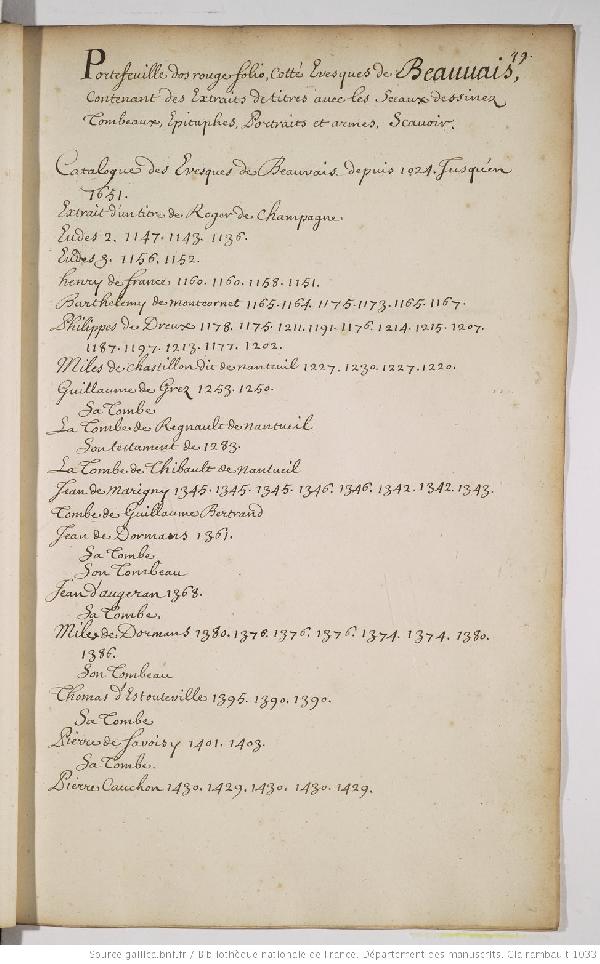 49.
Portefeuille dos rouge folio, Cotté Evesques de Beauuais,
Contenant des Extraits de titres auec les Sceaux dessinez
Tombeaux, Epitaphes, Portraits et armes, Scauoir.
Catalogue des Evesques de Beauvais depuis 1024. Jusqu'en
1651.
Extrait d'un titre de Roger de Champagne.
Eudes 2. 1147. 1143. 1136.
Eudes 3. 1156. 1152.
henry de france 1160. 1160. 1158. 1151.
Barthelemy de montcornet 1165. 1164. 1175. 1173. 1165. 1167.
Philippes de Dreux 1178. 1175. 1211. 1191. 1176. 1214. 1215. 1207.
1187. 1197. 1213. 1177. 1202.
Miles de Chastillon dit de nanteuil 1227. 1230. 1227. 1220.
Guillaume de Grez 1253. 1250.
Sa Tombe
La Tombe de Regnault de nanteuil
Son testament de 1283.
La Tombe de Thibault de nanteuil
Jean de Marigny 1345. 1345. 1345. 1346. 1346. 1342. 1342. 1343.
Tombe de Guillaume Bertrand
Jean de Dormans 1361.
Sa Tombe
Son Tombeau
Jean d'augeran 1368.
Sa Tombe.
Miles de Dormans 1380. 1376. 1376. 1376. 1374. 1374. 1380.
1386.
Son Tombeau
Thomas d'Estouteville 1395. 1390. 1390.
Sa Tombe
Pierre de Savoisy 1401. 1403.
Sa Tombe.
Pierre Cauchon 1430. 1429. 1430. 1430. 1429.
Source gallica.bnf.fr / Bibliothèque nationale de France. Département des manuscrits. Clairambault 1033